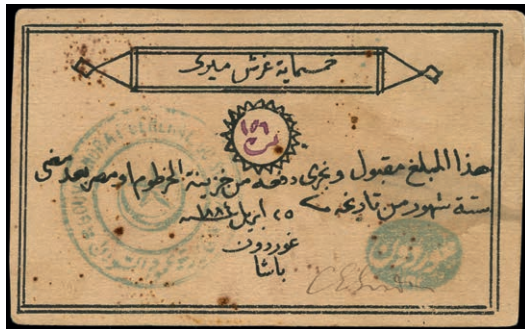 خمسماية غرش ميرى
هذا المبلغ مقبول ويجرى دفعه من خزينة الخرطوم او مصر بعد مضى
ستة شهور من تاريخه ٢٥ ابريل ١٨٨٤ سنه
غوردون
باشا